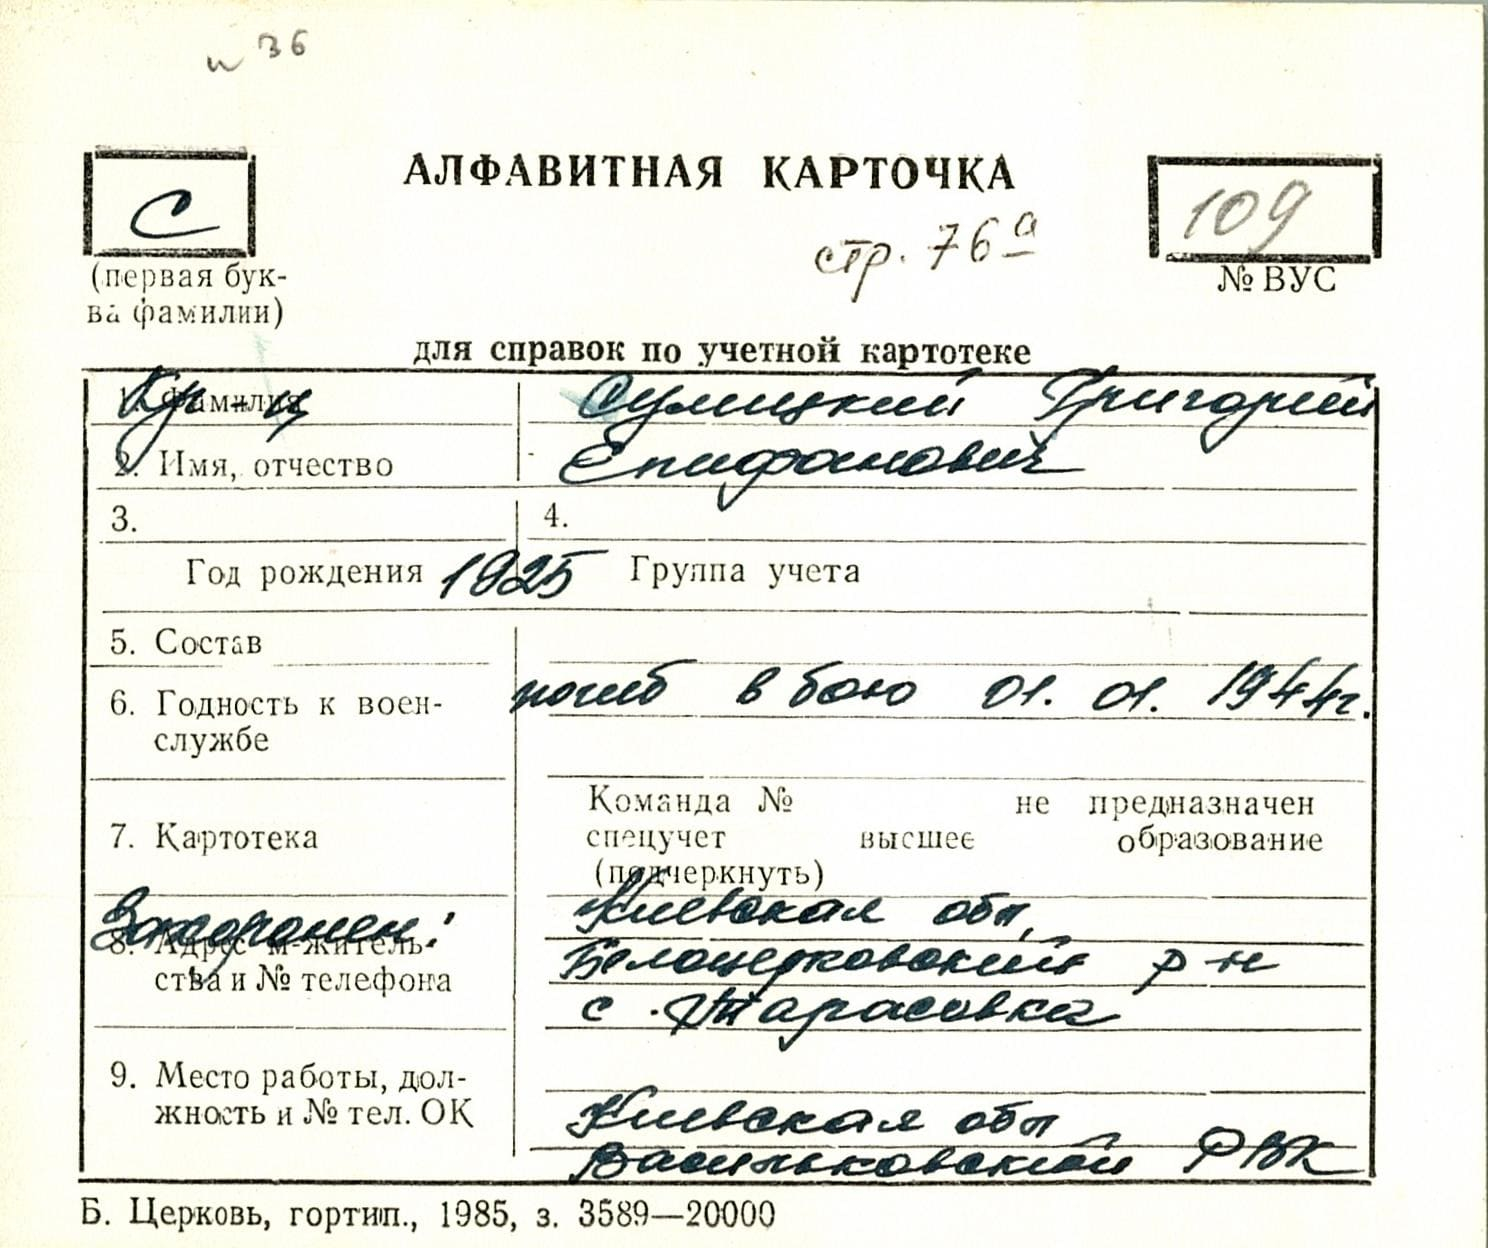 и 36
С
АЛФАВИТНАЯ КАРТОЧКА
109
стр. 76а
(первая бук-
ва фамилии)
№ ВУС
для справок по учетной картотеке
Кр-ц
1. Фамилия
Сулицкий Григорий
2. Имя, отчество
Епифанович
3.
4.
Год рождения 1925 Группа учета
5. Состав
погиб в бою 01. 01. 1944г.
6. Годность к воен-
службе
7. Картотека
Команда № не предназначен
спецучет высшее образование
(подчеркнуть)
Захоронен:
8. Адрес м-житель-
ства и № телефона
Киевская обл,
Белоцерковский р-н
с. Тарасовка
9. Место работы, дол-
жность и № тел. ОК
Киевская обл
Васильковский РВК
Б. Церковь, гортип., 1985, з. 3589—20000